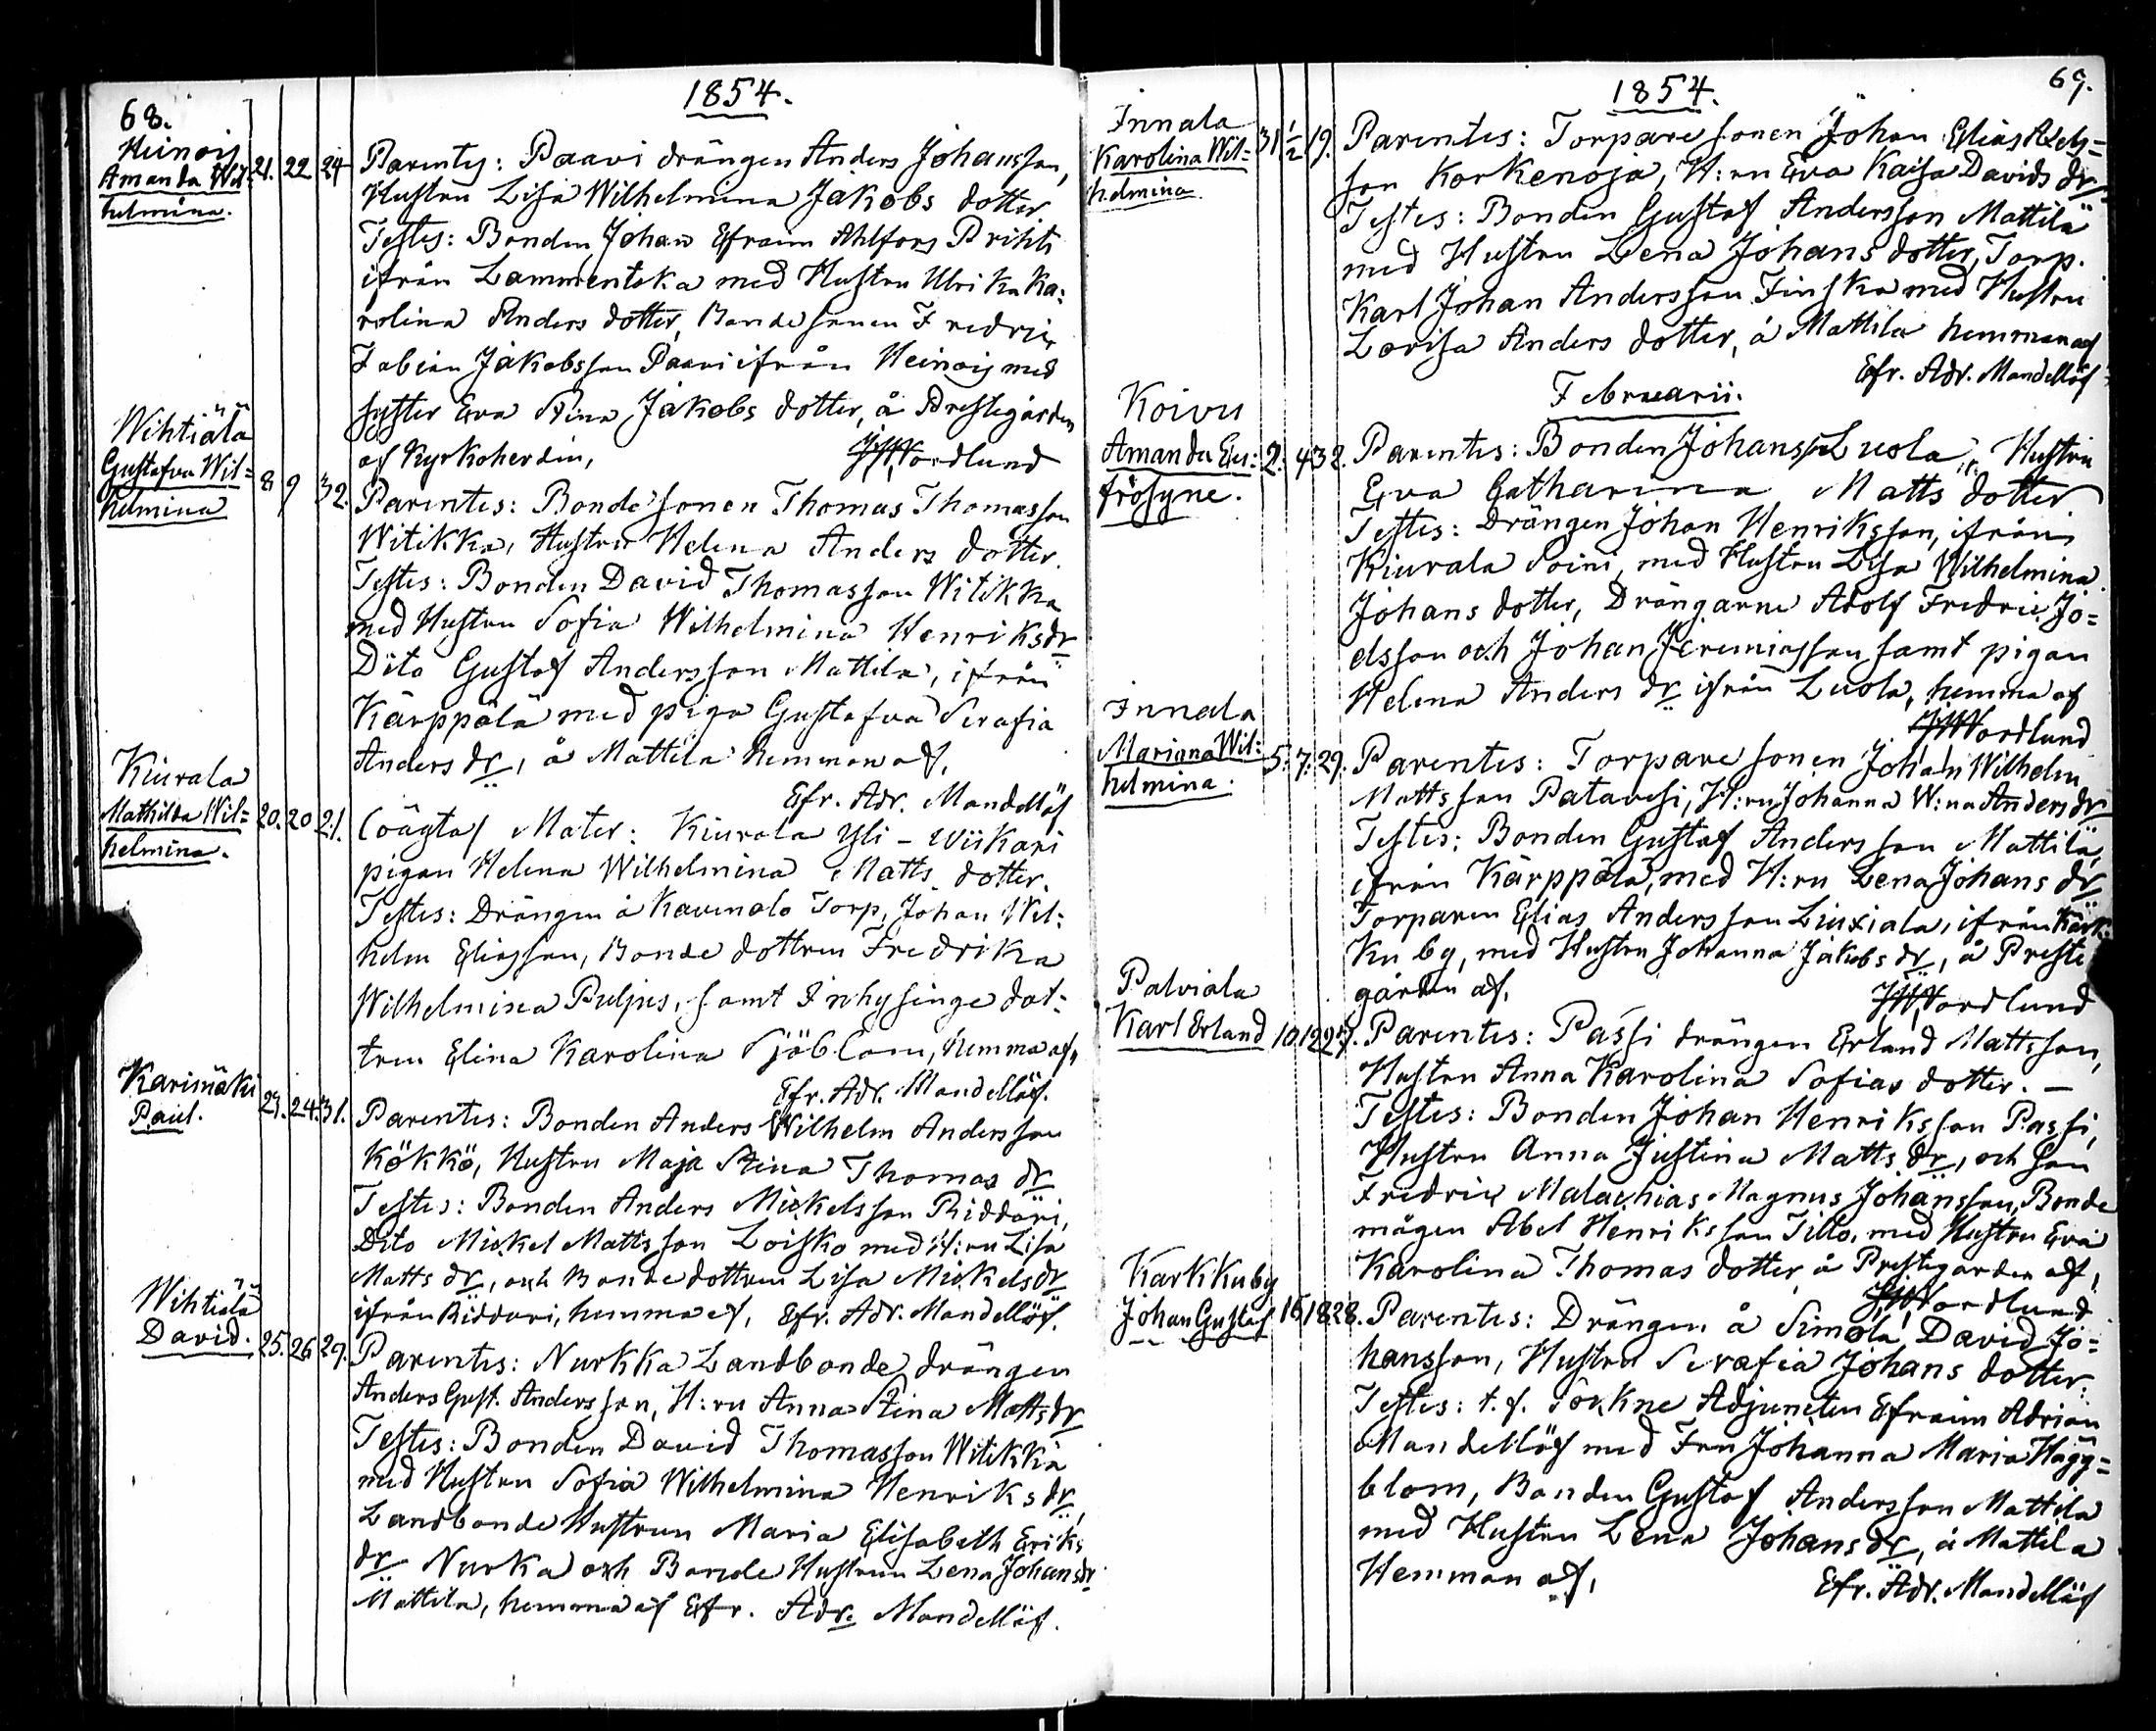 68.
1854.
Heinois
Amanda Wil=
helmina.
21. 22 24
Parentes: Paavi drängen Anders Johansson,
Hustru Lisa Wilhelmina Jakobs dotter
Testes: Bonden Johan Efraim Ahlfors Prihti
ifrån Lammentaka med Hustru Ulrika Ka:
rolina Anders dotter, Bondesonen Fredric
Fabian Jakobsson Paavi ifrån Heinois med
syster Eva Stina Jakobs dotter, å Prestegården
af Kyrkoherden, JWNordlund
Wihtiälä
Gustafva Wil=
helmina
8 9 32.
Parentes: Bonde sonen Thomas Thomasson
Witikka, Hustru Helena Anders dotter.
Testes: Bonden David Thomasson Witikka
med Hustru Sofia Wilhelmina Henriksdr
Dito Gustaf Andersson Mattila, ifrån
Kärppälä med piga Gustafva Serafia
Anders dr, å Mattila hemman af.
Efr. Adr. Mandellöf
Kiurala
Mathilda Wil=
helmina.
20. 20 21.
(oägta) Mater: Kiurala Yli-Wiikari
pigan Helena Wilhelmina Matts dotter.
Testes: Drängen å Kavenalo Torp, Johan Wil:
helm Eliasson, Bonde dottren Fredrika
Wilhelmina Puljus, samt Inhysinge dot:
tren Elina Karolina Sjöblom, hemma af,
Efr. Adr. Mandellöf.
Karimäki
Paul.
23. 24. 31.
Parentes: Bonden Anders Wilhelm Andersson
Kökkö, Hustru Maja Stina Thomas dr
Testes: Bonden Anders Mickelsson Riddari,
Dito Mickel Mattsson Loisko med H:ru Lisa
Matts dr, och Bonde dottren Lisa Mickelsdr
ifrån Riddari, hemma af, Efr. Adr. Mandellöf.
Wihtiälä
David.
25. 26 29.
Parentes: Nurkka Landbonde drängen
Anders Gust. Andersson, H:ru Anna Stina Matts dr
Testes: Bonden David Thomasson Witikka
med Hustru Sofia Wilhelmina Henriks dr,
Landbonde Hustrun Maria Elisabeth Eriks
dr Nurka och Bonde Hustrun Lena Johansdr
Mattila, hemma af Efr. Adr. Mandellöf.
69.
1854.
Innala
Karolina Wil=
helmina
31 1/2 19.
Parentes: Torpare sonen Johan Elias Axels=
son Korkenoja, H:ru Eva Kaisa Davids dr
Testes: Bonden Gustaf Andersson Mattila
med Hustru Lena Johans dotter, Torp.
Karl Johan Andersson Finska med Hustru
Lovisa Anders dotter, å Mattila hemman af
Efr. Adr. Mandellöf
Februarii.
Koivu
Amanda Eu:
frösyne.
2. 4 32.
Parentes: Bonden Johanss Luola, Hustru
Eva Catharina Matts dotter
Testes: Drängen Johan Henriksson, ifrån
Kiurala Soini, med Hustru Lisa Wilhelmina
Johans dotter, Drängarne Adolf Fredric Jo=
elsson och Johan Jeremiasson samt pigan
Helena Anders dr ifrån Luola, hemma af
JWNordlund
Innala
Mariana Wil:
helmina.
5. 7. 29.
Parentes: Torpare sonen Johan Wilhelm
Mattsson Patavesi, H:ru Johanna W:na Anders dr
Testes: Bonden Gustaf Andersson Mattila,
ifrån Kärppälä, med H:ru Lena Johans dr
Torparen Elias Andersson Liuxiala, ifrån Kark:
ku by, med Hustru Johanna Jakobs dr, å Preste
gården af, JWNordlund
Palviala
Karl Erland
10. 12 27.
Parentes: Passi drängen Erland Mattsson,
Hustru Anna Karolina Sofias dotter. —
Testes: Bonden Johan Henriksson Passi,
Hustru Anna Justina Matts dr, och son
Fredric Malachias Magnus Johansson, Bonde
mågen Abel Henriksson Tillo, med Hustru Eva
Karolina Thomas dotter å Prestegården af,
JWNordlund
Karkkuby
Johan Gustaf
16 18 28.
Parentes: Drängen å Simola David Jo=
hansson, Hustru Serafia Johans dotter.
Testes: t. f. Sockne Adjuncten Efraim Adrian
Mandellöf med Fru Johanna Maria Hägg=
blom, Bonden Gustaf Andersson Mattila
med Hustru Lena Johans dr, å Mattila
Hemman af, Efr. Adr. Mandellöf